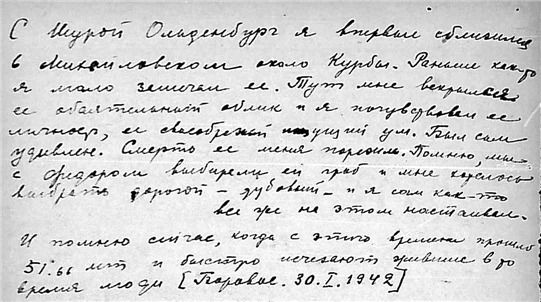 С Шурой Ольденбург я впервые сблизился
в Михайловском около Курбы. Раньше как-то
я мало замечал ее. Тут мне вскрылся
ее обаятельный облик и я почувствовал ее
личность, ее своеобразный ищущий ум. Был сам
удивлен. Смерть ее меня поразила. Помню, мы
с Федором выбирали ей гроб и мне хотелось
выбрать дорогой – дубовый – и я сам как-то
все же на этом настаивал.
И помню сейчас, когда с этого времени прошло
51. лет и быстро исчезают жившие в то
время люди [Боровое. 30.I.1942]